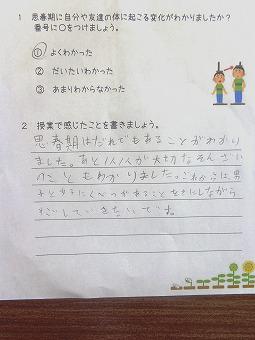 1 思春期に自分や友達の体に起こる変化がわかりましたか?
番号に○をつけましょう。
① よくわかった
② だいたいわかった
③ あまりわからなかった
2 授業で感じたことを書きましょう。
思春期はだれでもあることがわかり
ました。あと1人1人が大切なそんざい
ってこともわかりました。これからは、男
子と女子にくべつがあることをきにしながら
すごしていきたいです。